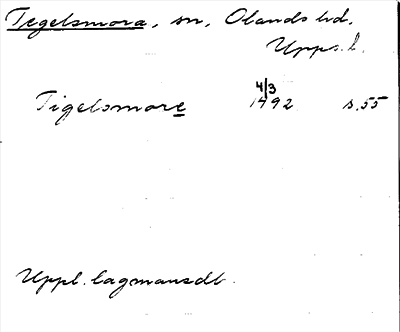 Tegelsmora, sn, Olands hd.
Upps. l.
4/3
Tigelsmore 1492 s. 55
Uppl. lagmansdb.